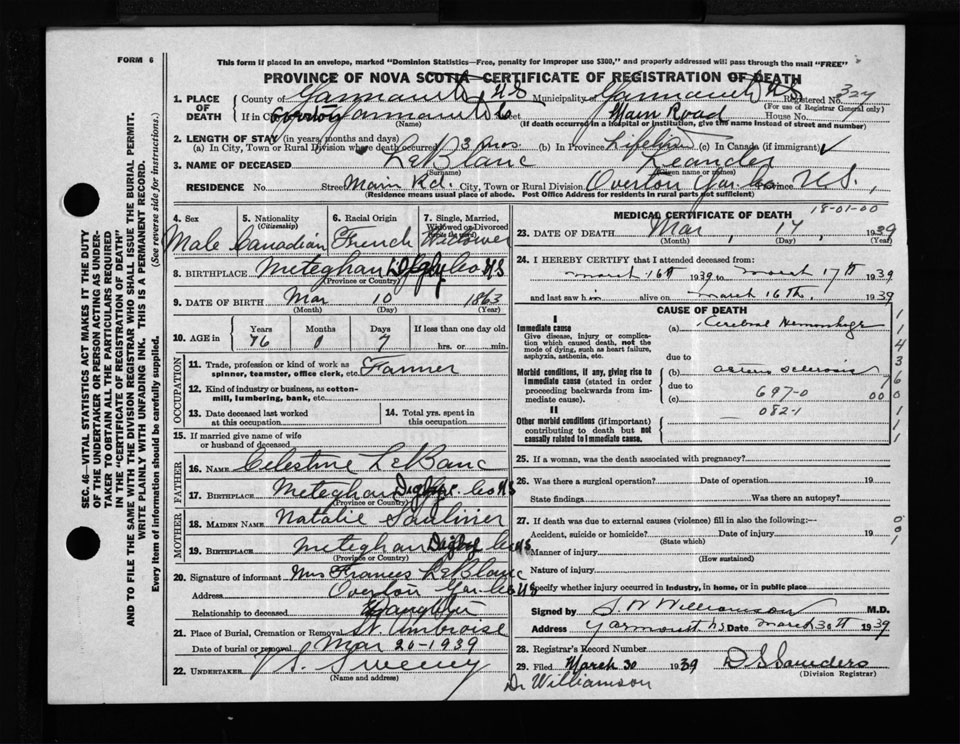 FORM 6
This form if placed in an envelope, marked "Dominion Statistics—Free, penalty for improper use $300," and properly addressed will pass through the mail "FREE"
PROVINCE OF NOVA SCOTIA—CERTIFICATE OF REGISTRATION OF DEATH
1. PLACE OF DEATH
County of Yarmouth NS Municipality Yarmouth NS Registered No. 327
(For use of Registrar General only)
If in City Overton Yarmouth Co Street Main Road House No.
(If death occurred in a hospital or institution, give the name instead of street and number)
2. LENGTH OF STAY (in years, months and days)
(a) In City, Town or Rural Division where death occurred 3 mos. (b) In Province Lifetime (c) In Canada (if immigrant) ✓
3. NAME OF DECEASED LeBlanc Leander
(Surname) (Given name or names)
RESIDENCE No. Street Main Rd. City, Town or Rural Division Overton Yar. Co. Province N.S.,
(Residence means usual place of abode. Post Office Address for residents in rural parts not sufficient)
4. Sex
Male
5. Nationality
(Citizenship)
Canadian
6. Racial Origin
French
7. Single, Married, Widowed or Divorced
(Write the word)
Widower
8. BIRTHPLACE Meteghan Digby Co NS
(Province or Country)
9. DATE OF BIRTH Mar 10 1863
(Month) (Day) (Year)
10. AGE in
Years Months Days If less than one day old
76 0 7 hrs. or min.
OCCUPATION
11. Trade, profession or kind of work as spinner, teamster, office clerk, etc. Farmer
12. Kind of industry or business, as cotton-mill, lumbering, bank, etc.
13. Date deceased last worked at this occupation
14. Total yrs. spent in this occupation
15. If married give name of wife or husband of deceased
FATHER
16. NAME Celestine LeBanc
17. BIRTHPLACE Meteghan Digby Co NS
(Province or Country)
MOTHER
18. MAIDEN NAME Natalie Saulnier
19. BIRTHPLACE Meteghan Digby Co NS
(Province or Country)
20. Signature of informant Mrs Frances LeBlanc
Address Overton Yar. Co NS
Relationship to deceased Daughter
21. Place of Burial, Cremation or Removal St. Ambroise
Date of burial or removal Mar 20-1939
22. UNDERTAKER V S. Sweeny
(Name and address)
MEDICAL CERTIFICATE OF DEATH
18-01-00
23. DATE OF DEATH Mar, 17, 1939
(Month) (Day) (Year)
24. I HEREBY CERTIFY that I attended deceased from:
march 16th 1939 to march 17th 1939
and last saw him alive on march 16th. 1939
CAUSE OF DEATH
I
Immediate cause
Give disease, injury or complication which caused death, not the mode of dying, such as heart failure, asphyxia, asthenia, etc.
(a) Cerebral Hemorrhage
due to
Morbid conditions, if any, giving rise to immediate cause (stated in order proceeding backwards from immediate cause).
(b)
due to
697-0
(c)
082-1
II
Other morbid conditions (if important) contributing to death but not causally related to immediate cause.
25. If a woman, was the death associated with pregnancy?
26. Was there a surgical operation? Date of operation 19
State findings Was there an autopsy?
27. If death was due to external causes (violence) fill in also the following:—
Accident, suicide or homicide? Date of injury 19
(State which)
Manner of injury
(How sustained)
Nature of injury
Specify whether injury occurred in industry, in home, or in public place
Signed by Williamson M.D.
Address Yarmouth NS Date March 30th 1939
28. Registrar's Record Number
29. Filed March 30 1939 D S Saunders
(Division Registrar)
Dr Williamson
SEC. 46—VITAL STATISTICS ACT MAKES IT THE DUTY
OF THE UNDERTAKER OR PERSON ACTING AS UNDER-
TAKER TO OBTAIN ALL THE PARTICULARS REQUIRED
IN THE "CERTIFICATE OF REGISTRATION OF DEATH"
AND TO FILE THE SAME WITH THE DIVISION REGISTRAR WHO SHALL ISSUE THE BURIAL PERMIT.
WRITE PLAINLY WITH UNFADING INK. THIS IS A PERMANENT RECORD.
Every item of information should be carefully supplied. (See reverse side for instructions.)